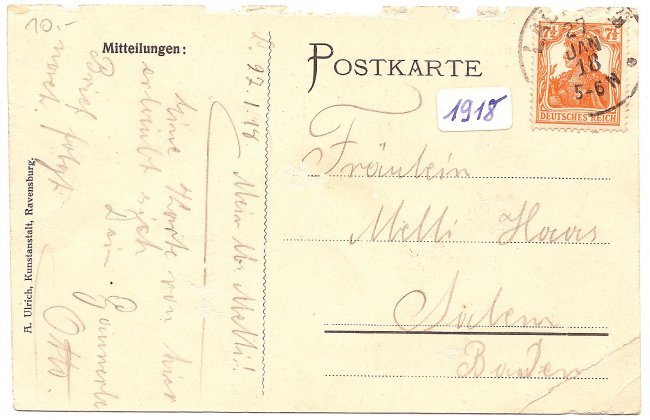 10.-
Mitteilungen:
POSTKARTE
27
JAN
18
5-6 N
7½
7½
DEUTSCHES REICH
1918
Fräulein
Melli Haas
Salem
Baden
27.1.18
Mein lb. Melli!
Eine Karte von hier
erlaubt sich
Dein
Otto.
Brief folgt
noch.
A. Ulrich, Kunstanstalt, Ravensburg.